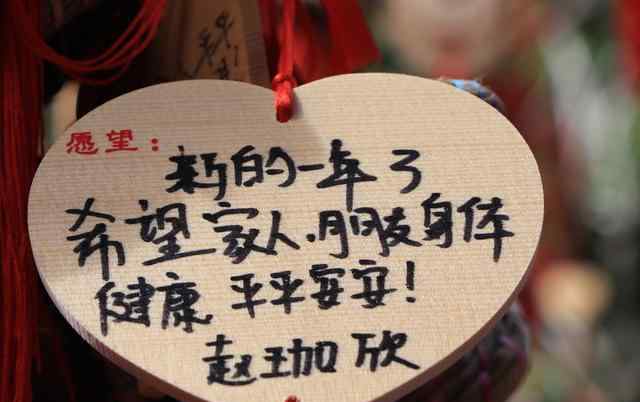 愿望：
新的一年了
希望家人.朋友身体
健康 平平安安！
赵珈欣